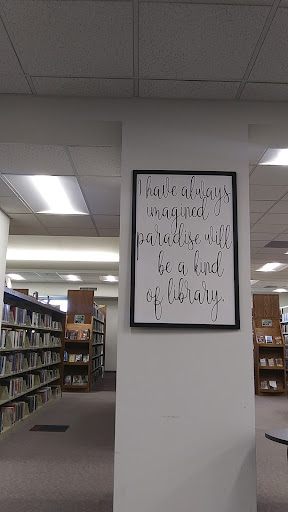 I have always
imagined
paradise will
be a kind
of library.